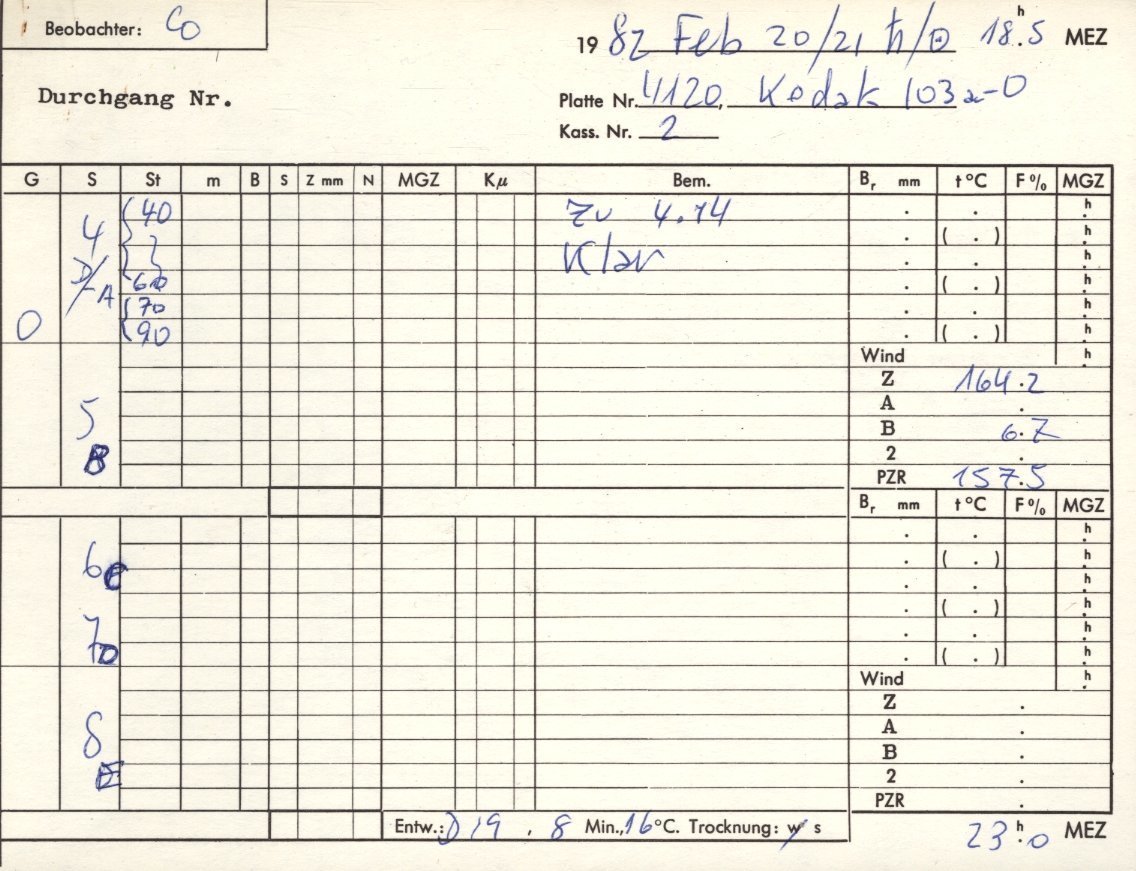 Beobachter: Co
19 82 Feb 20/21 ♄/☉ 18h.5 MEZ
Durchgang Nr.
Platte Nr. 4120, Kodak 103a-O
Kass. Nr. 2
G S St m B S Z mm N MGZ Kμ Bem. Br mm t °C F % MGZ
40 Zu 4.14 . . h.
4 . ( . ) h.
Klar . . h.
D/-A 60 . ( . ) h.
70 . . h.
0 90 . ( . ) h.
Wind h.
Z 164.2
5 A .
B 6.7
B 2 .
PZR 157.5
Br mm t °C F % MGZ
. . h.
6 C . ( . ) h.
. . h.
. ( . ) h.
7 D . . h.
. ( . ) h.
Wind h.
Z .
8 A .
B .
E 2 .
PZR .
Entw.: D 19, 8 Min., 16 °C. Trocknung: w s
23h.0 MEZ